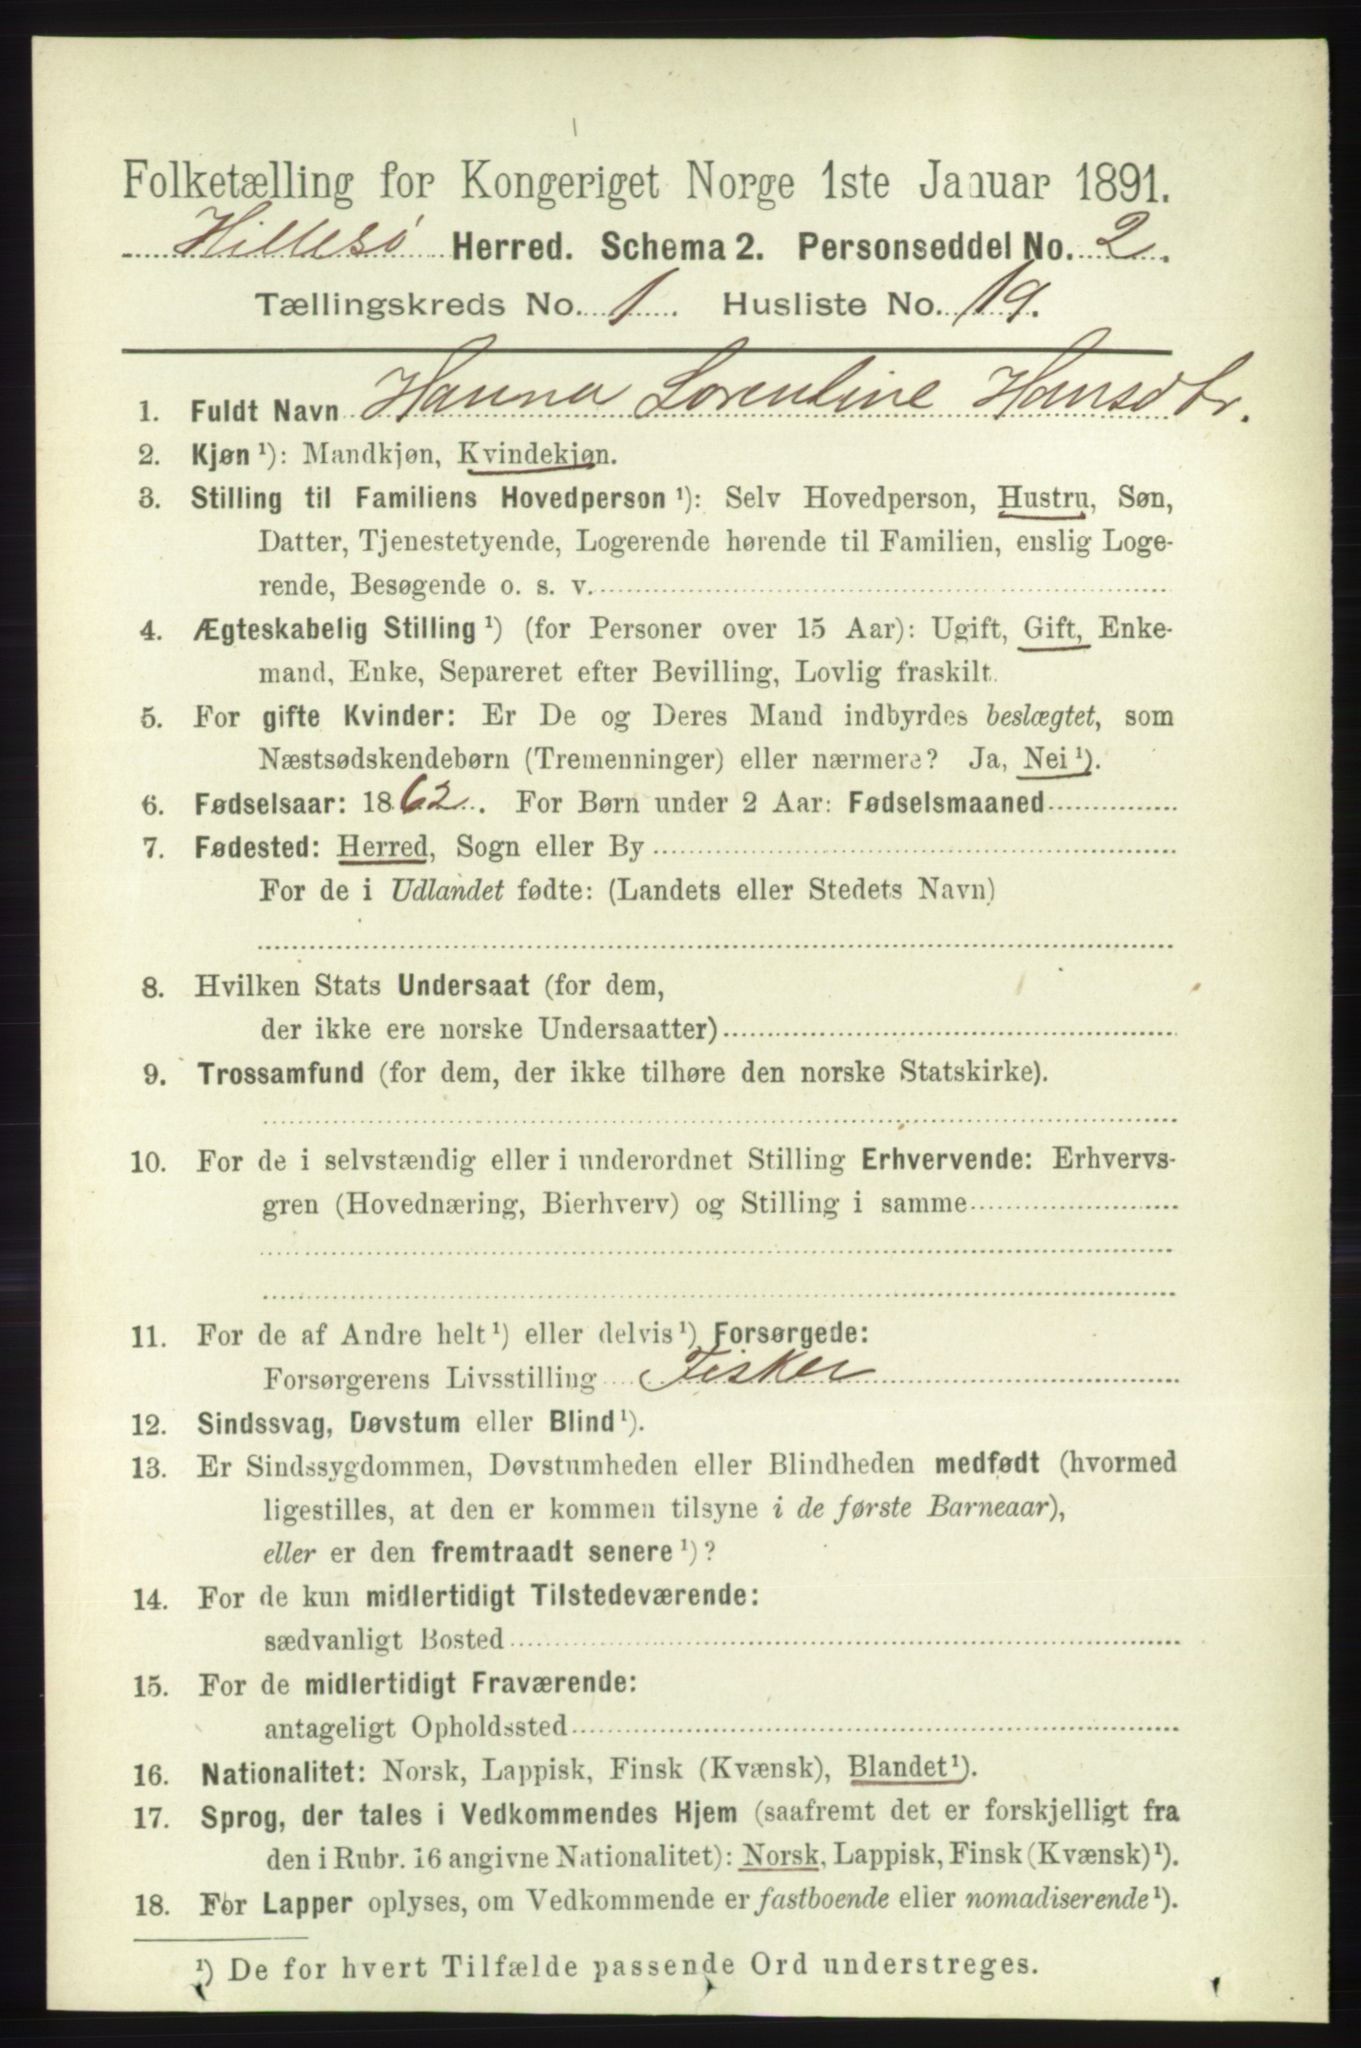 Folketælling for Kongeriget Norge 1ste Januar 1891.
Hillesø Herred. Schema 2. Personseddel No. 2.
Tællingskreds No. 1. Husliste No. 19.
1. Fuldt Navn Hanna Lorentine Hansdtr.
2. Kjøn ¹): Mandkjøn, Kvindekjøn.
3. Stilling til Familiens Hovedperson ¹): Selv Hovedperson, Hustru, Søn,
Datter, Tjenestetyende, Logerende hørende til Familien, enslig Loge-
rende, Besøgende o. s. v.
4. Ægteskabelig Stilling ¹) (for Personer over 15 Aar): Ugift, Gift, Enke-
mand, Enke, Separeret efter Bevilling, Lovlig fraskilt.
5. For gifte Kvinder: Er De og Deres Mand indbyrdes beslægtet, som
Næstsødskendebørn (Tremenninger) eller nærmere? Ja, Nei ¹).
6. Fødselsaar: 1862. For Børn under 2 Aar: Fødselsmaaned
7. Fødested: Herred, Sogn eller By
For de i Udlandet fødte: (Landets eller Stedets Navn)
8. Hvilken Stats Undersaat (for dem,
der ikke ere norske Undersaatter)
9. Trossamfund (for dem, der ikke tilhøre den norske Statskirke).
10. For de i selvstændig eller i underordnet Stilling Erhvervende: Erhvervs-
gren (Hovednæring, Bierhverv) og Stilling i samme
11. For de af Andre helt ¹) eller delvis ¹) Forsørgede:
Forsørgerens Livsstilling Fisker
12. Sindssvag, Døvstum eller Blind ¹).
13. Er Sindssygdommen, Døvstumheden eller Blindheden medfødt (hvormed
ligestilles, at den er kommen tilsyne i de første Barneaar),
eller er den fremtraadt senere ¹)?
14. For de kun midlertidigt Tilstedeværende:
sædvanligt Bosted
15. For de midlertidigt Fraværende:
antageligt Opholdssted
16. Nationalitet: Norsk, Lappisk, Finsk (Kvænsk), Blandet ¹).
17. Sprog, der tales i Vedkommendes Hjem (saafremt det er forskjelligt fra
den i Rubr. 16 angivne Nationalitet): Norsk, Lappisk, Finsk (Kvænsk) ¹).
18. For Lapper oplyses, om Vedkommende er fastboende eller nomadiserende ¹).
¹) De for hvert Tilfælde passende Ord understreges.